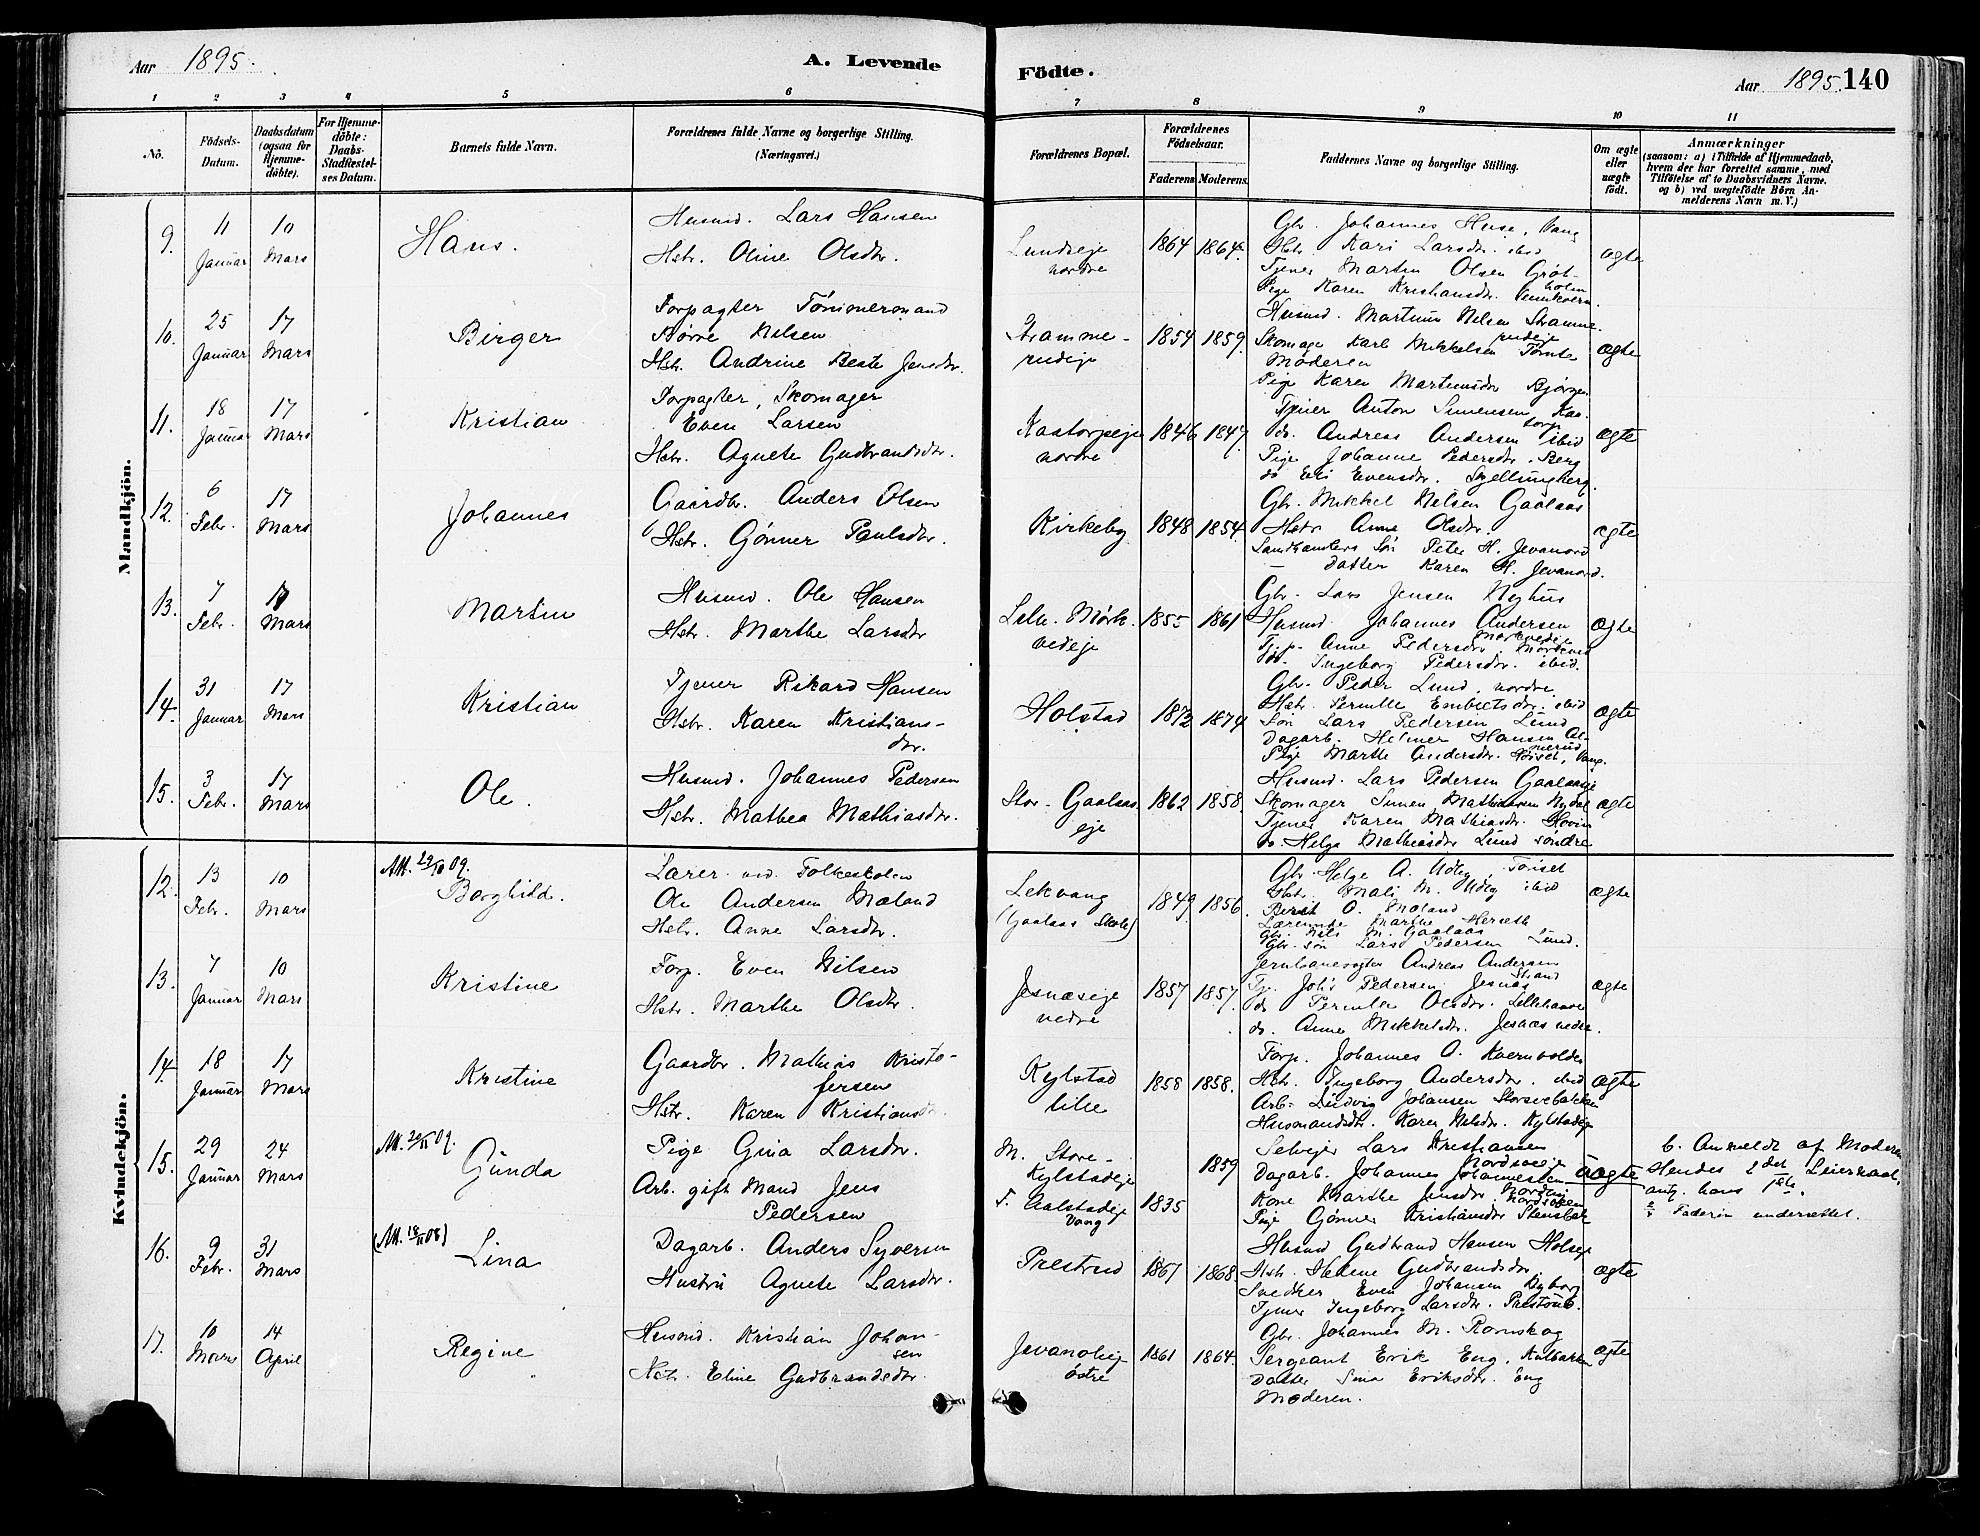 Aar 1895.
A. Levende
Födte.
Aar 1895 140
1 2 3 4 5 6 7 8 9 10 11
Nô.
Födsels-
Datum.
Daabsdatum
(ogsaa for
Hjemme-
döbte).
For Hjemme-
döbte:
Daabs-
Stadfæstel-
ses Datum.
Barnets fulde Navn.
Forældrenes fulde Navne og borgerlige Stilling.
(Næringsvei.)
Forældrenes Bopæl.
Forældrenes
Födselsaar.
Faderens Moderens.
Faddernes Navne og borgerlige Stilling.
Om ægte
eller
uægte
födt.
Anmærkninger
(saasom: a) i Tilfælde af Hjemmedaab,
hvem der har forrettet samme, med
Tilföielse af to Daabsvidners Navne.
og b) ved uægtefödte Börn An-
melderens Navn m. V.)
Mandkjön.
9.
11
Januar
10
Mars
Hans.
Husmd. Lars Hansen
Hstr. Oline Olsdtr.
Lundseje
nordre
1864 1864.
Gbr. Johannes Huse, Vang
Hstr. Kari Larsdtr. ibid
Tjener Martin Olsen Grøt-
holm
Pige Karen Kristiansdtr.
ægte
10.
25
Januar
17
Mars
Birger
Forpagter Tømmermand
Børre Nilsen
Hstr. Andrine Beate Jensdtr.
Stramme-
rudeje
1854 1859.
Husmd. Martinus Nilsen Stramme-
rudeje
Skomager Karl Mikkelsen Tomte
Moderen
Pige Karen Martinusdtr Bjørge
ægte
11.
18
Januar
17
Mars
Kristian
Forpagter, Skomager
Even Larsen
Hstr. Agnete Gudbrandsdtr.
Kaatorpeje
nordre
1846 1847.
Tjener Anton Simensen Kaa-
torp
do. Andreas Andersen ibid
Pige Johanne Pedersdtr. Berg
do Eli Evensdtr. Skjellungberg.
ægte
12.
6
Febr.
17
Mars
Johannes
Gaardbr. Anders Olsen
Hstr. Gønner Paulsdtr.
Kirkeby
1848 1854.
Gbr. Mikkel Nilsen Gaalaas
Hstr Anne Olsdtr.
Landhandlers Søn Peter H. Jevanord
— Datter Karen H. Jevanord.
ægte
13.
7
Febr.
17
Mars
Martin
Husmd. Ole Hansen
Hstr. Marthe Larsdtr
Lille-Mørk-
vedeje
1855 1861
Gbr. Lars Jensen Nyhus
Husmd. Johannes Andersen
Mørkvedeje
Tj.p. Anne Pedersdtr. Mørkved
do. Ingeborg Pedersdtr. ibid.
ægte
14.
31
Januar
17
Mars
Kristian
Tjener Rikard Hansen
Hstr. Karen Kristians-
dtr.
Holstad
1872 1874
Gbr. Peder Lund, nordre
Hstr. Pernille Embretsdtr. ibid
Søn Lars Pedersen Lund
Dagarb. Helmer Hansen Al-
merud
Pige Marthe Andersdtr. Vang.
ægte
15.
3
Febr.
17
Mars
Ole.
Husmd. Johannes Pedersen
Hstr. Mathea Mathiasdtr.
Stor-Gaalaas
eje
1862 1858.
Husmd. Lars Pedersen Gaalaaseje
Skomager Simen Mathiassen Nydal
Tjener Karen Mathiasdtr. Hovin
do. Helga Mathiasdtr Lund søndre
ægte
Kvindekjön.
12.
13
Febr.
10
Mars
Att. 29/10 09.
Borghild.
Lærer ved Folkeskolen
Ole Andersen Mæland
Hstr. Anne Larsdtr.
Lekvang
(Gaalaas Skole)
1849 1856.
Gbr. Helge A. Udby, Tønset
Hstr. Mali M. Udby ibid
Berit O. Mæland
Lærerinde Marthe Herseth
Gbr. Nils M. Gaalaas
Gbr. søn Lars Pedersen Lund.
ægte
13.
7
Januar
10
Mars
Kristine
Forp. Even Nilsen
Hstr. Marthe Olsdtr.
Jesnæseje
nedre
1857 1857.
Jernbanevogter Andreas Andersen
Strand
Tj. Johs Pedersen Jesnæs
do Pernille Olsdtr. Lillehaave
do. Anne Mikkelsdtr. Jesnæs nedre.
ægte
14.
18
Januar
17
Mars
Kristine
Gaardbr. Mathias Kristo-
fersen
Hstr. Karen Kristiansdtr
Kylstad
lille
1858 1858.
Forp. Johannes O. Kvernvolden
Hstr. Ingeborg Andersdtr. ibid
Arb. Ludvig Johansen Storsvebakken
Husmandsdtr. Karen Nilsdtr. Kylstadeje
ægte
15.
29
Januar
24
Mars
Att. 20/11 09.
Gunda
Pige Gina Larsdtr.
Arb. gift Mand Jens
Pedersen
M. Store-
Kylstadeje
F. Aalstadeje
Vang
1835
1859
Selvejer Lars Kristiansen
Nordsveje
Dagarb. Johannes Johannessen
Kone Marthe Jensdtr.
Pige Gønner Kristiansdtr Stensbak
uægte
b. Anmeldt af Moderen
Hendes 2det Leiermaal,
antg. hans 1ste.
Faderen underrettet.
16.
9
Febr.
31
Mars
(Att. 18/11 08)
Lina
Dagarb. Anders Syversen
Hustru Agnete Larsdtr.
Prestrud
1867 1868.
Husmd Gudbrand Hansen Holseje
Hstr. Helene Gudbrandsdtr.
Snedker Even Johansen Nyborg
Tjener Ingeborg Larsdtr. Prestrud.
ægte
17.
10
Mars
14
April
Regine
Husmd. Kristian Johan-
sen
Hstr. Eline Gudbrandsdtr.
Jevanoleje
østre
1861 1864.
Gbr. Johannes M. Romskog
Sergeant Erik Eng, Kulbakken
Datter Sina Eriksdtr. Eng
Moderen.
ægte